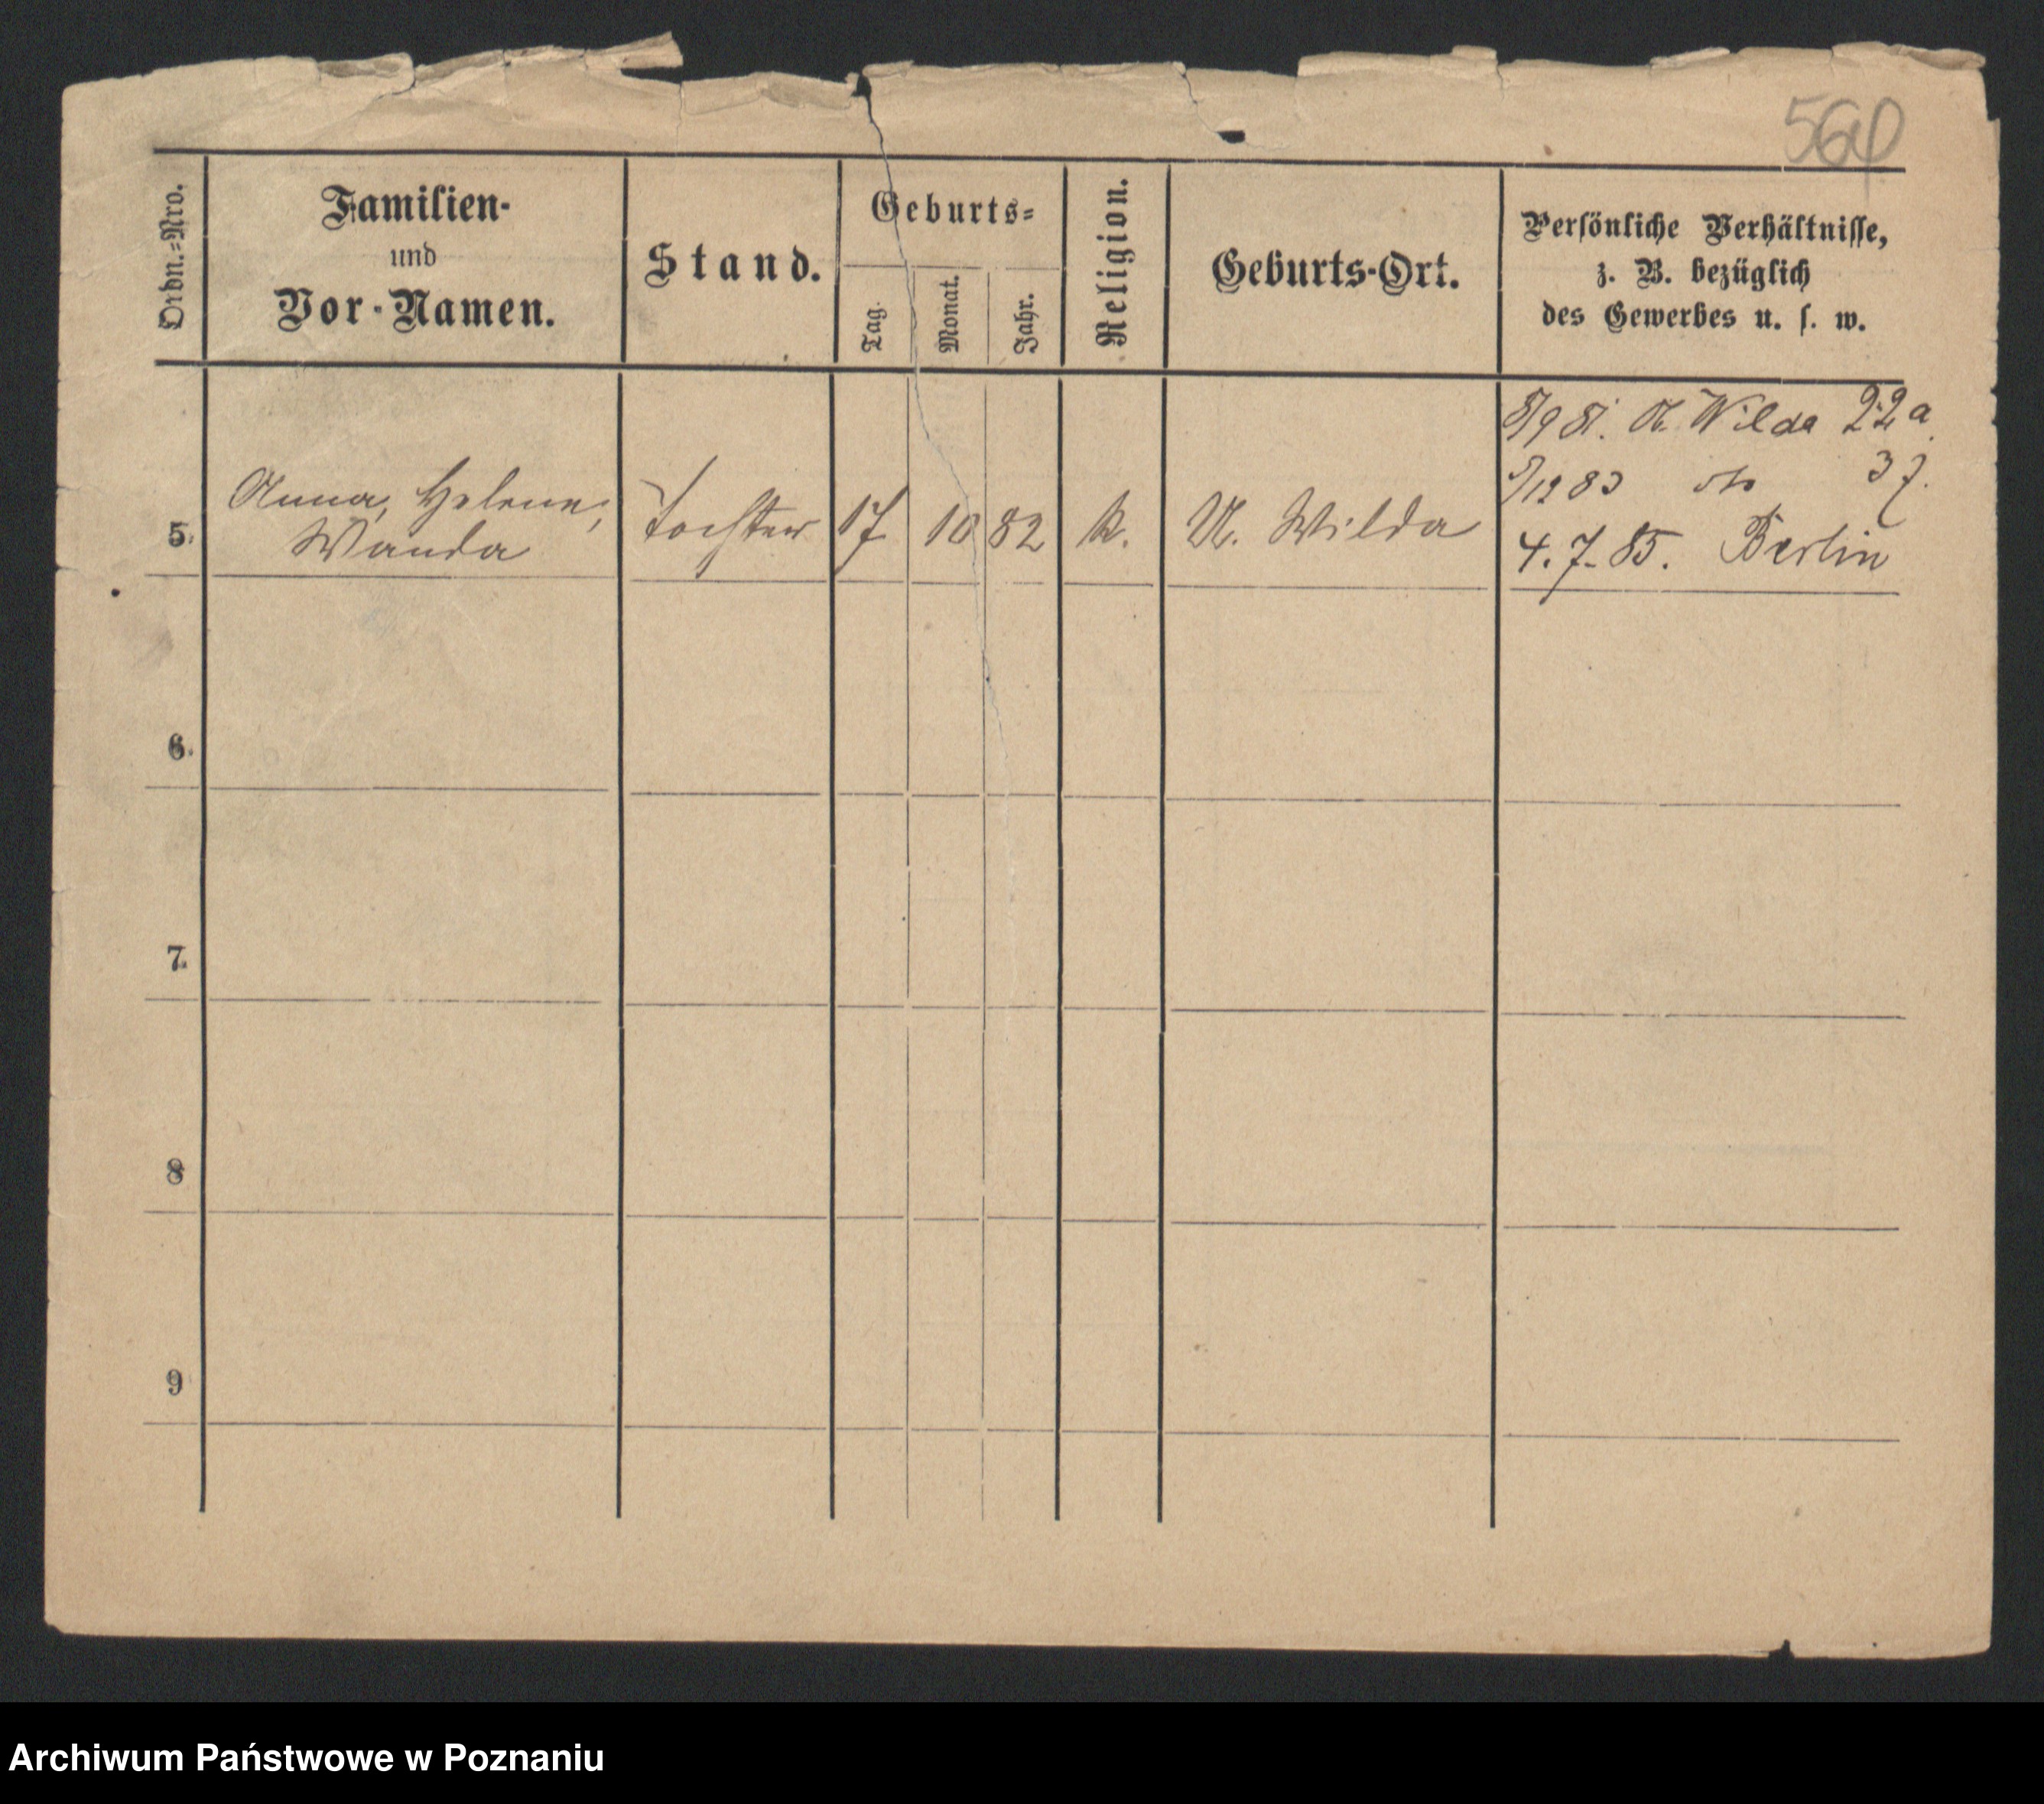 560
Ordn.=Nro.
Familien-
und
Vor-Namen.
Stand.
Geburts=
Tag.
Monat.
Jahr.
Religion.
Geburts-Ort.
Persönliche Verhältnisse,
z. B. bezüglich
des Gewerbes u. s. w.
5.
Anna, Helene,
Wanda
Tochter
17
10
82
k.
U. Wilda
Wilda 22a
/12 83
37.
4. 7. 85. Berlin
6.
7.
8
9
Archiwum Państwowe w Poznaniu